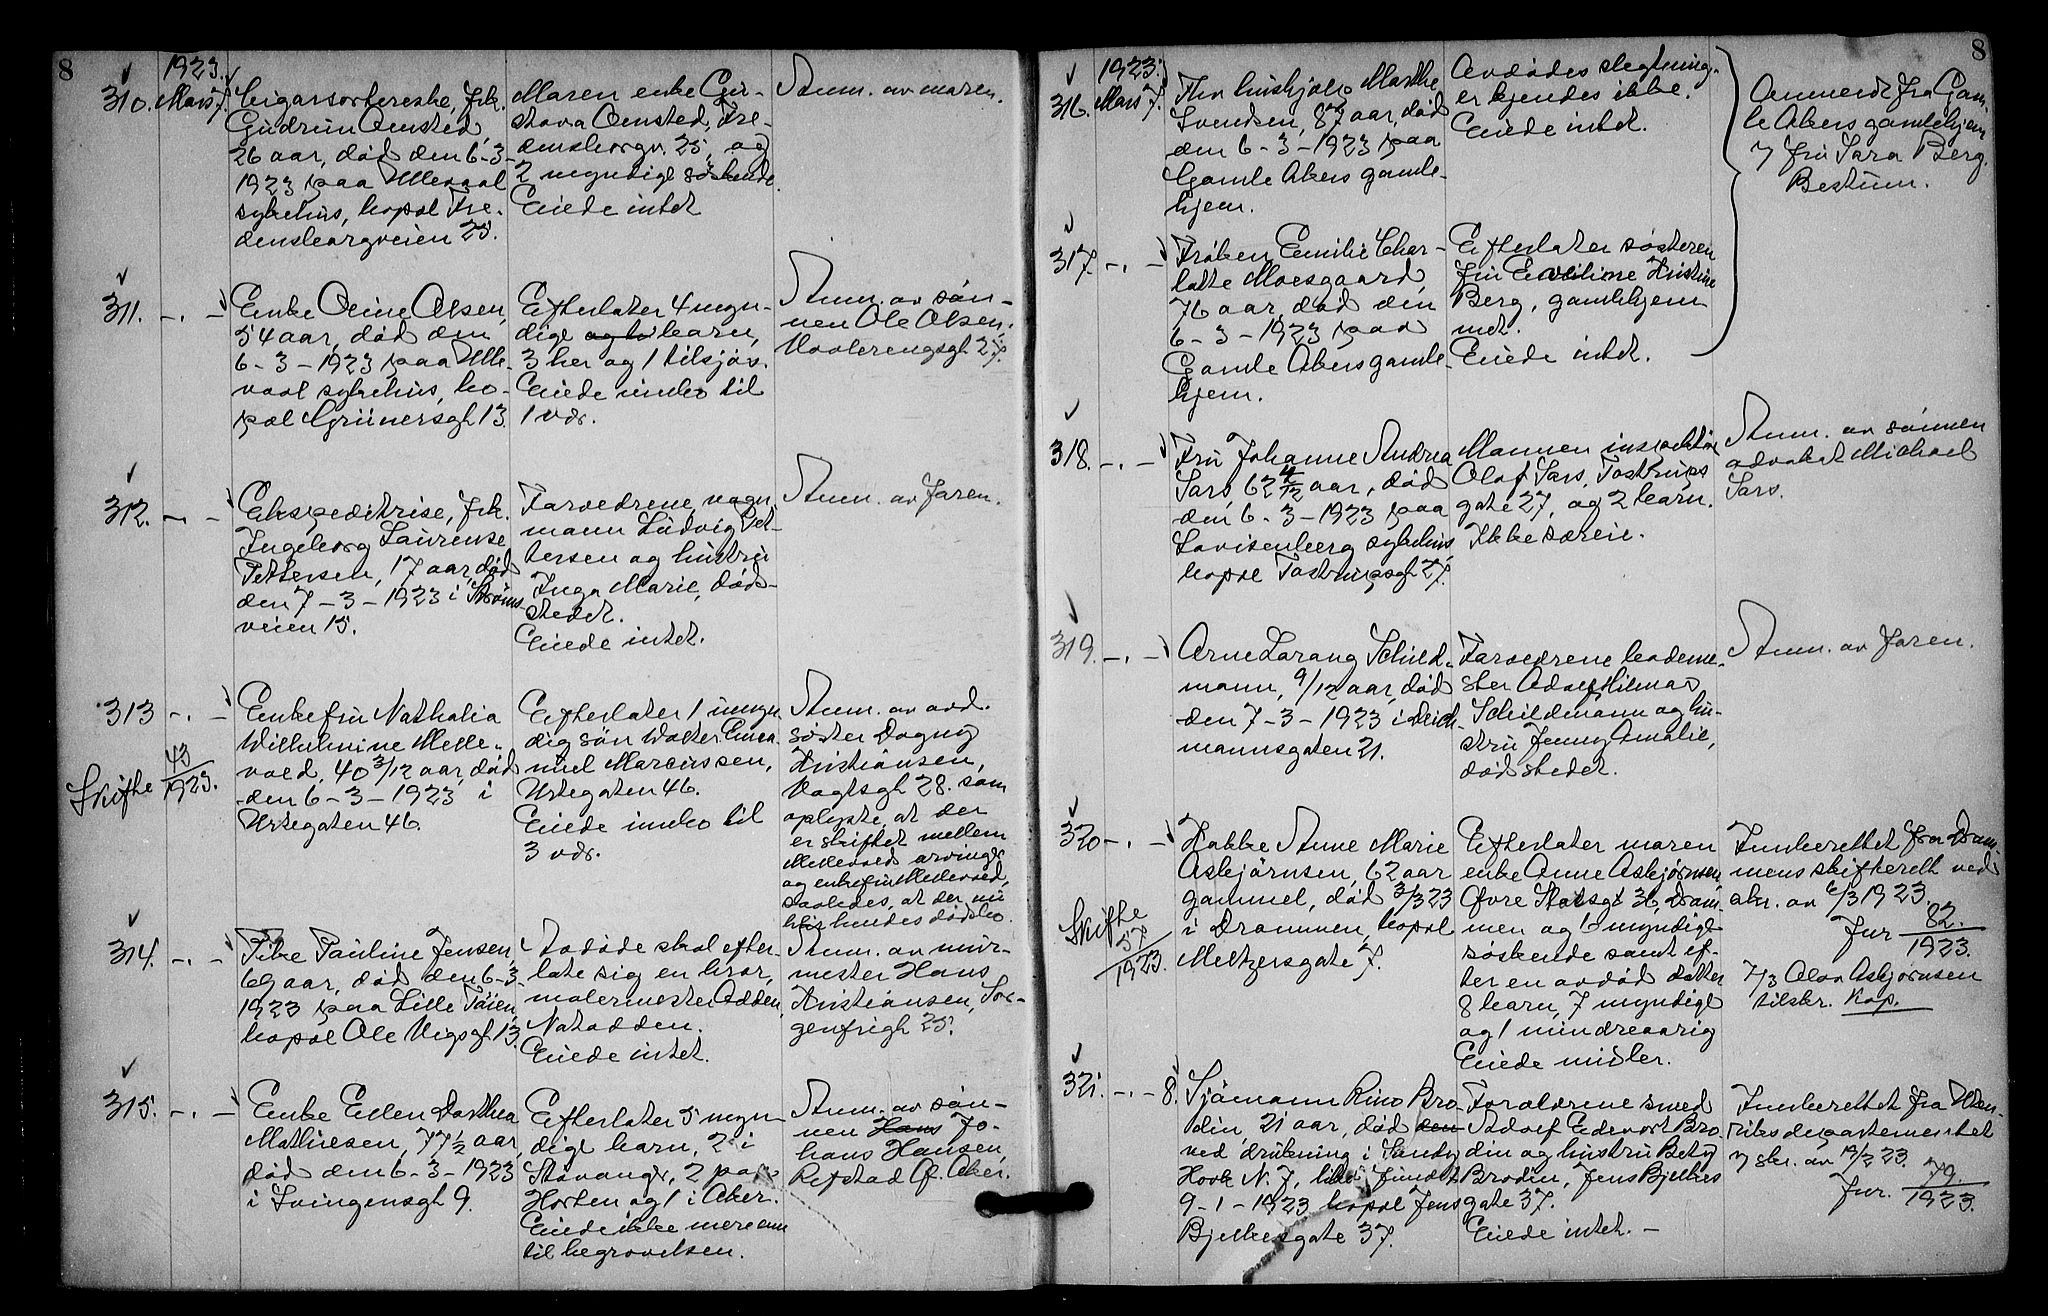 8
1923.
310. Mars 7.
Cigarsortereske, frk.
Gudrun Omsted,
26 aar, død den 6-3-
1923 paa Ullevaal
sykehus, bopæl Fre-
densborgveien 25.
Moren enke Gu-
stava Omsted, Fre-
densborgv. 25, og
2 myndige søskende.
Eiede intet
Anm. av moren.
311. -.-
Enke Oline Olsen,
54 aar, død den
6-3-1923 paa Ulle-
vaal sykehus, bo-
pæl Grünersgt 13.
Efterlater 4 myn-
dige barn,
3 her og 1 tilsjøs.
Eiede indbo til
1 vær.
Anm. av søn-
nen Ole Olsen,
Vaalerengsgt 27.
312. -.-
Ekspeditrise, frk.
Ingeborg Laurense
Pettersen, 17 aar, død
den 7-3-1923 i Strøms-
veien 15.
Forældrene, vogn-
mann Ludvig Pet-
tersen og hustru
Inga Marie, døds-
stedet.
Eiede intet.
Anm. av faren.
313 -.-
Skifte 43/1923.
Enkefru Nathalia
Wilhelmine Melle-
vold, 40 3/12 aar, død
den 6-3-1923 i
Urtegaten 46.
Efterlater 1 umyn-
dig søn Walter Ema-
nuel Marcussen,
Urtegaten 46.
Eiede indbo til
3 vær.
Anm. av avd.
søster Dagny
Kristiansen,
Vogtsgt 28. som
oplyste, at der
er skiftet mellem
Mellevold arvinger
og enkefru Mellevold,
saaledes, at der nu
blir hendes dødsbo.
314. -.-
Pike Pauline Jensen,
69 aar, død den 6-3-
1923 paa Lille Tøien,
bopæl Ole Vigsgt 13.
Avdøde skal efter-
late sig en bror,
malermester Odden,
Notodden.
Eiede intet.
Anm. av mur-
mester Hans
Kristiansen, Sor-
genfrigt 25.
315. -.-
Enke Ellen Dorthea
Mathiesen, 77 1/2 aar,
død den 6-3-1923
i Svingensgt 9.
Efterlater 5 myn-
dige barn, 2 i
Stavanger, 2 paa
Horten og 1 i Aker.
Eiede ikke mere enn
til begravelsen.
Anm. av søn-
nen Hans Jo-
hans Hansen,
Refstad Ø. Aker.
8
1923.
316. Mars 7.
Fhv. hushjelp Marthe
Svendsen, 87 aar, død
den 6-3-1923 paa
Gamle Akers gamle-
hjem.
Avdødes slegtning-
er kjendes ikke.
Eiede intet.
Anmeldt fra Gam-
le Akers gamlehjem
v/ fru Sara Berg.
Bestum.
317. -.-
Frøken Emilie Char-
lotte Moesgaard,
76 aar, død den
6-3-1923 paa
Gamle Akers gamle-
hjem.
Efterlater søsteren
fru Kristine
Berg, gamlehjem-
met.
Eiede intet.
318. -.-
Fru Johanne Andrea
Sars, 62 4/12 aar, død
den 6-3-1923 paa
Lovisenberg sykehus,
bopæl Tostrupsgt 27.
Mannen inspektør
Olaf Sars, Tostrups
gate 27, og 2 barn.
Ikke særeie.
Anm. av sønnen
advokat Michael
Sars.
319. -.-
Arne Lorang Schild-
mann, 9/12 aar, død
den 7-3-1923 i Deich-
mannsgaten 21.
Forældrene bademe-
ster Adolf Hilmar
Schildmann og hu-
stru Jenny Amalie,
dødsstedet.
Anm. av faren.
320 -.-
Skifte 57/1923.
Kokke Anne Marie
Asbjørnsen, 62 aar
gammel, død 3/3 23
i Drammen, bopæl
Meltzersgate 7.
Efterlater moren
enke Anne Asbjørnsen,
Øvre Storgt 36, Dram-
men og 1 myndige
søskende samt ef-
ter en avdød datter
8 barn, 7 myndige
og 1 mindreaarig
Eiede midler.
Innberettet fra Dram-
mens skifterett ved
skr. av 6/3 1923.
Jnr 82./1923.
7/3 Olav Asbjørnsen
tilskr. Kop.
321. -.- 8.
Sjømann Rino Bro-
din, 21 aar, død den
ved drukning i Sandy
Hook N. J, liket fundet
9-1-1923 bopæl Jens
Bjelkesgate 37.
Forældrene smed
Adolf Edevart Bro-
din og hustru Betzy
Brodin, Jens Bjelkes
gate 37.
Eiede intet. -
Innberettet fra Uten-
riksdepartementet
v skr. av 19/2 23.
Jnr. 79./1923.